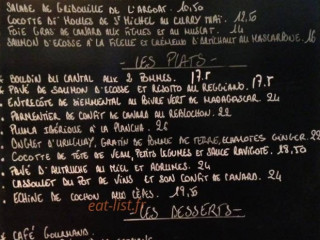 SALADE DE GRIBOUILLE DE L'ARGOAT. 10.50
COCOTTE DE MOULES DE ST MICHEL AU CURRY THAÏ. 12,50
FOIE GRAS DE CANARD AUX FIGUES ET AU MUSCAT. 14
SAUMON D'ECOSSE A LA FICELLE ET CRÉMEUX D'ARTICHAUT AU MASCARPONE. 16
- LES PLATS -
BOUDIN DU CANTAL AUX 2 POMMES. 17.5
PAVÉ DE SAUMON D'ECOSSE ET RISOTTO AU REGGIANO. 17.5
ENTRECÔTE DE SIEMMENTAL AU POIVRE VERT DE MADAGASCAR. 24
PARMENTIER DE CONFIT DE CANARD AU REBLOCHON. 22
PLUMA IBÉRIQUE A LA PLANCHA. 26
ONGLET D'URUGUAY, GRATIN DE POMME DE TERRE, ECHALOTES GINGER 22
COCOTTE DE TÊTE DE VEAU, PETITS LÉGUMES ET SAUCE RAVIGOTE. 18,50
PAVÉ D'AUTRUCHE AU MIEL ET AGRUMES. 24
CASSOULET DU POT DE VINS ET SON CONFIT DE CANARD. 24
ECHINE DE COCHON AUX CÈPES. 19,50
eat-list.fr
- LES DESSERTS -
CAFÉ GOURMAND